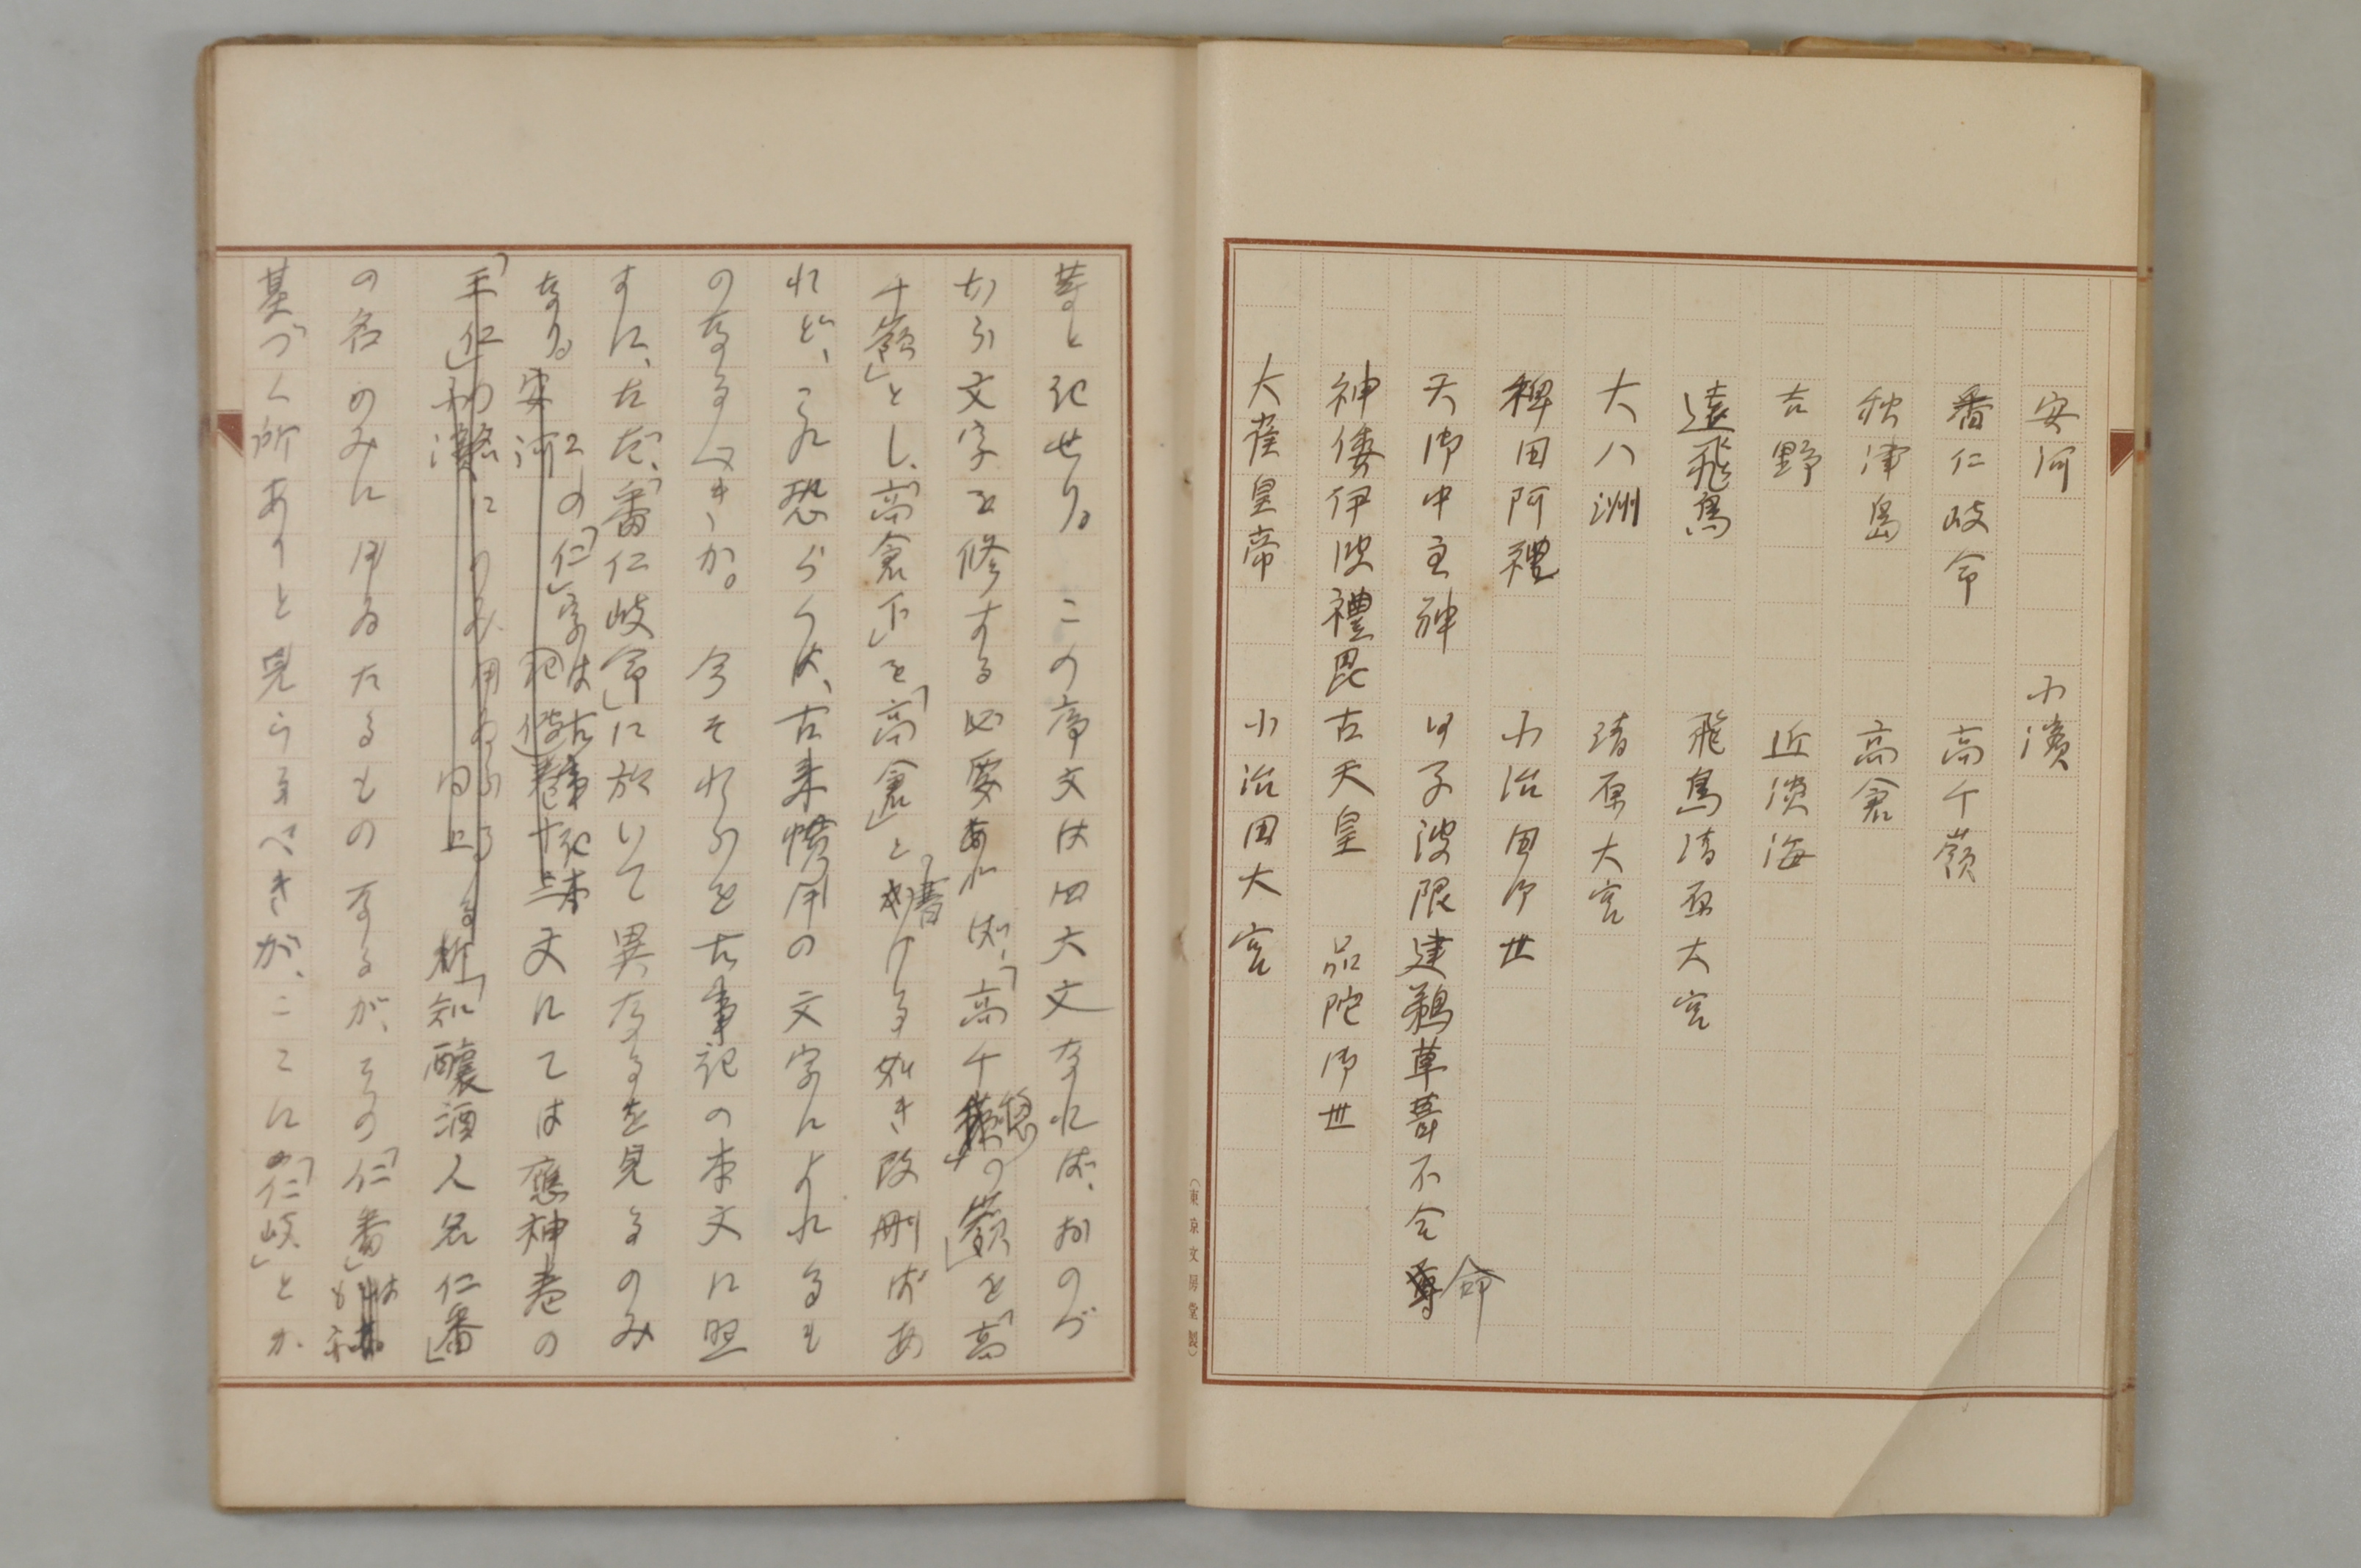 安河　小濱
番仁岐命　高千嶺
秋津島　高倉
吉野　近淡海
遠飛鳥　飛鳥清原大宮
大八洲　清原大宮
稗田阿禮　小治田御世
天御中主神　日子波限建鵜草葺不合命
神倭伊波禮毘古天皇　品陀御世
大雀皇帝　小治田大宮
（東京文房堂製）
等と記せり。この序文は四六文なれば、おのづ
から文字を修する必要あれば、「高千穂の嶺」を「高
千嶺」とし、「高倉下」を「高倉」と書ける如き改刪はあ
れど、これ恐らくは、古来慣用の文字によれるも
のなるべきか。今それらを古事記の本文に照
すに、たゞ、「番仁岐命」に於いて異なるを見るのみ
なり。この「仁」字は古事記本文にては應神巻の
「知釀酒人名仁番」
の名のみに用ゐたるものなるが、その「仁番」は
基づく所ありと見らるべきが、ここに「仁岐」とか